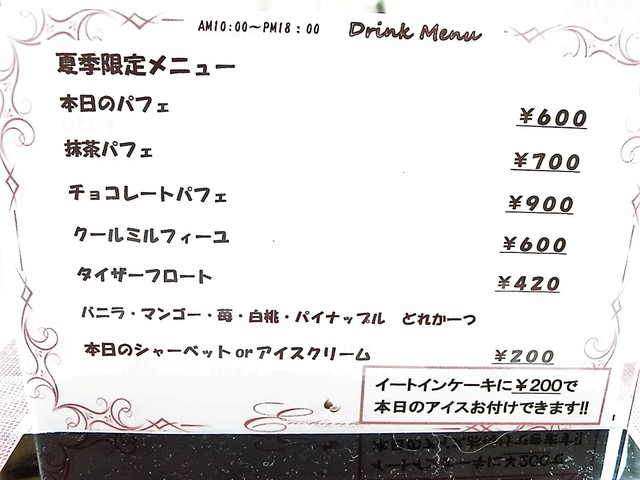 AM10:00～PM18:00 Drink Menu
夏季限定メニュー
本日のパフェ ¥600
抹茶パフェ ¥700
チョコレートパフェ ¥900
クールミルフィーユ ¥600
タイザーフロート ¥420
バニラ・マンゴー・苺・白桃・パイナップル どれか一つ
本日のシャーベットorアイスクリーム ¥200
イートインケーキに¥200で
本日のアイスお付けできます!!